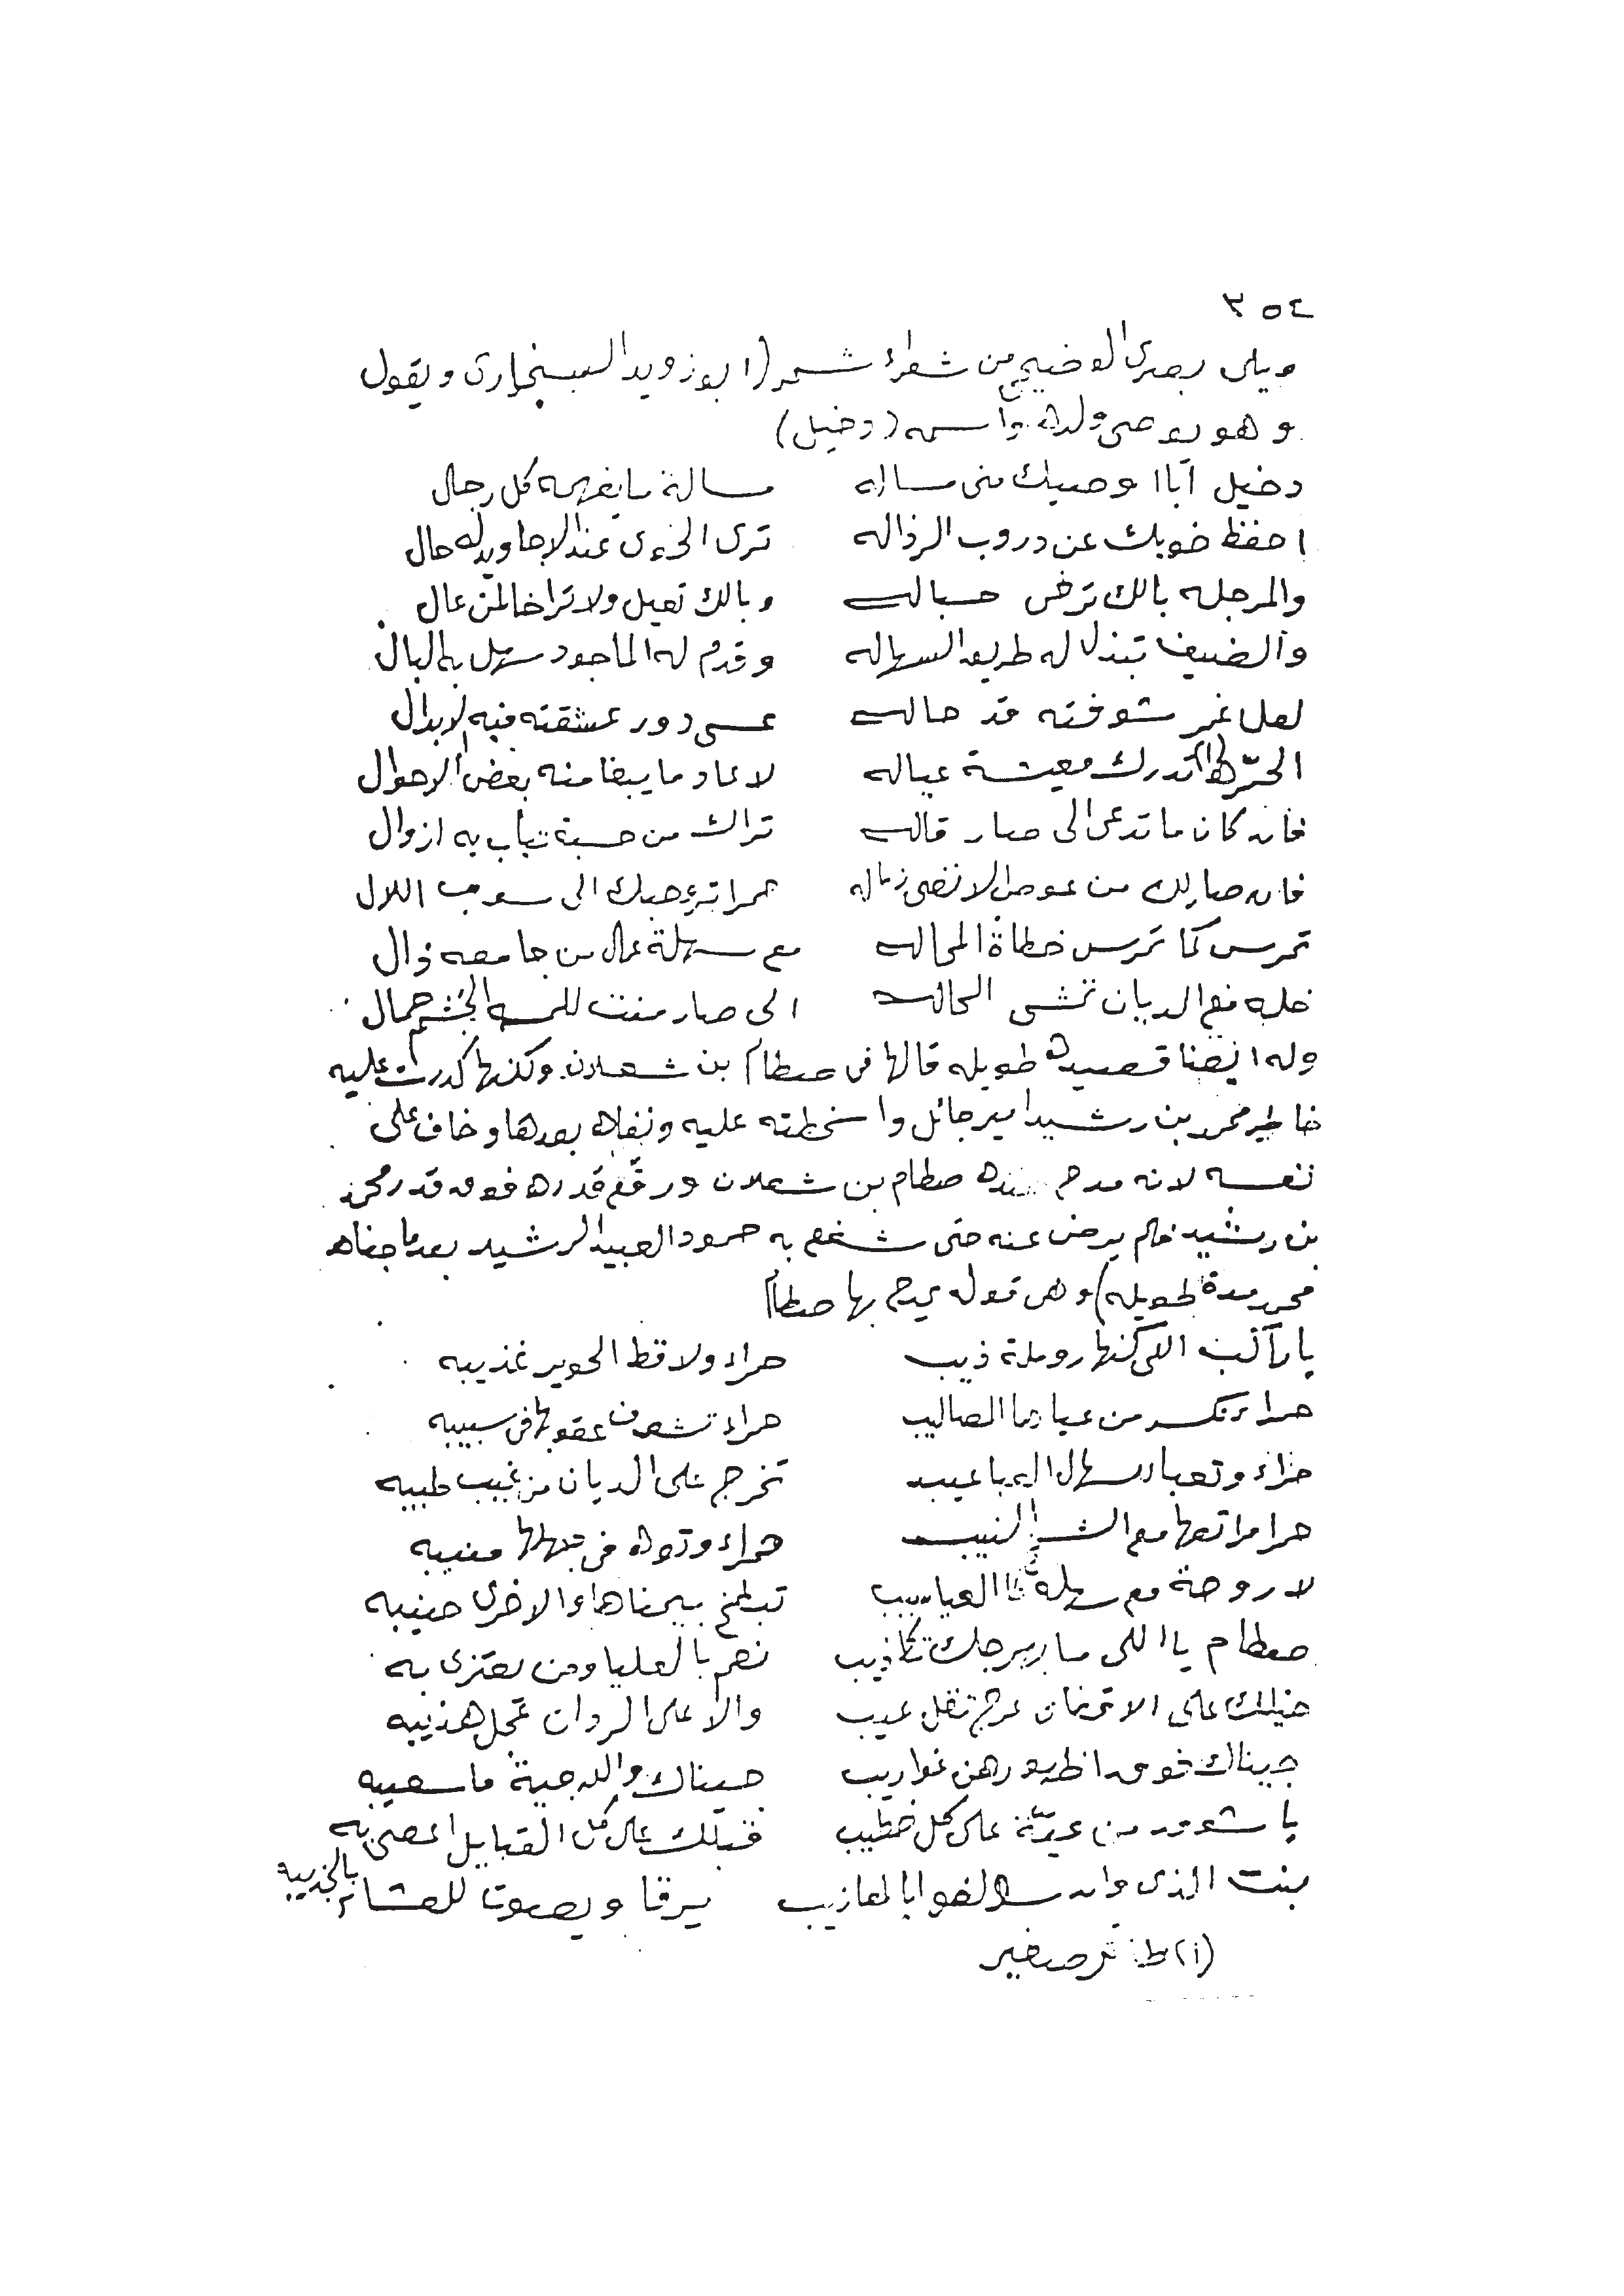 ٣٥٤
ويلى بصرى الوضيحى من شعراء شمر (ابوزويد السنجارى ويقول
وهو يوصى ولده واسمه (دخيل)
دخيل آبا اوصيك منى مساله مسالة ما يفهمه كل رجال
احفظ خويك عن دروب الرذاله ترى الخوى عند الاجاويد له حال
والمرجله بالك ترخى حباله وبالك تعيل ولا تراخا لمن عال
والضيف تبذل له طريق السهاله وقدم له الماجود سهل بالمبال
لعل غمر شوفته قد حاله عسى دور عشقته فيه لابدال
الحر الى تدرك معيشة عياله لا عاد ما يبغا منه بعض الاحوال
فان كان ما تدعى الى صار قاله تراك من حسبة تباب به ازوال
فان صار لك من عوص الانضى زماله حمرا توصلك الى سوق الدلال
تمرس كما تمرس خطاة المحاله مع سهلة من جا معه زال
خله مع الديان تمشى لحاله الى صار منت للخشم جمال
وله ايضا قصيده طويله قالها فى صطام بن شعلان ولكنها كدرت عليه
خاطر محمد بن رشيد امير حائل واسخطته عليه ونفاه بعدها وخاف على
نفسه لانه مدح ضده صطام بن شعلان ورفع قدره فوق قدر محمد
بن رشيد فلم يرض عنه حتى شفع به حمود العبيد الرشيد بعد ما جفاه
محمد مدة طويله) وهى قوله يمدح بها صطام
يا راكب اللى كنها روملة ذيب حمراء ولا قط الحوير غذيبه
حمرا تكسر من عباها المصاليب حمراء تشعف عقوبها فى سبيبه
حزاء وتعبا لسهال العباعيب تخرج على الديان من غيب طيبه
حمرا مراتعها مع النيب حمراء وتوه فى جهلها منيبه
لا روحة مع سهلة العباسيب تبلخ بيمناها والاخرى جنيبه
صطام يا اللى ما بمرجلك تكاذيب نصر بالعليا ومن يعتزى به
خيلك على الاقفاى عرج تقل عيب والا على الردات عجل هذيبه
جيناك فوق ظهورهن غواريب جيناك والله جية ما سعيبه
يا شوق من عيت على كل خطيب قبلك على كل القبايل اعصى به
بنت الذى وان سلا لفوا بالمعازيب يرقا ويصوت للعشا بالجذيبه
(١) ط: صغير